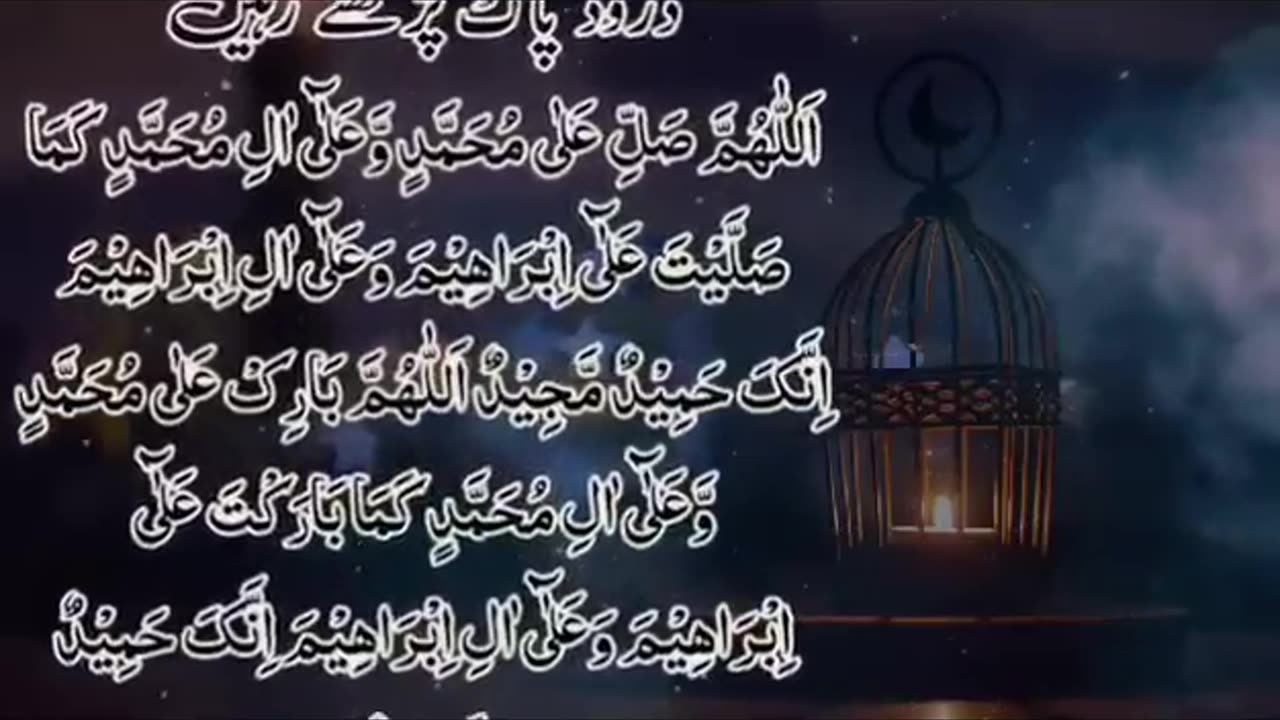 درود پاک پڑھتے رہیں
اَللّٰهُمَّ صَلِّ عَلٰی مُحَمَّدٍ وَّعَلٰٓی اٰلِ مُحَمَّدٍ کَمَا
صَلَّیْتَ عَلٰٓی اِبْرَاهِیْمَ وَعَلٰٓی اٰلِ اِبْرَاهِیْمَ
اِنَّکَ حَمِیْدٌ مَّجِیْدٌ اَللّٰهُمَّ بَارِکْ عَلٰی مُحَمَّدٍ
وَّعَلٰٓی اٰلِ مُحَمَّدٍ کَمَا بَارَکْتَ عَلٰٓی
اِبْرَاهِیْمَ وَعَلٰٓی اٰلِ اِبْرَاهِیْمَ اِنَّکَ حَمِیْدٌ